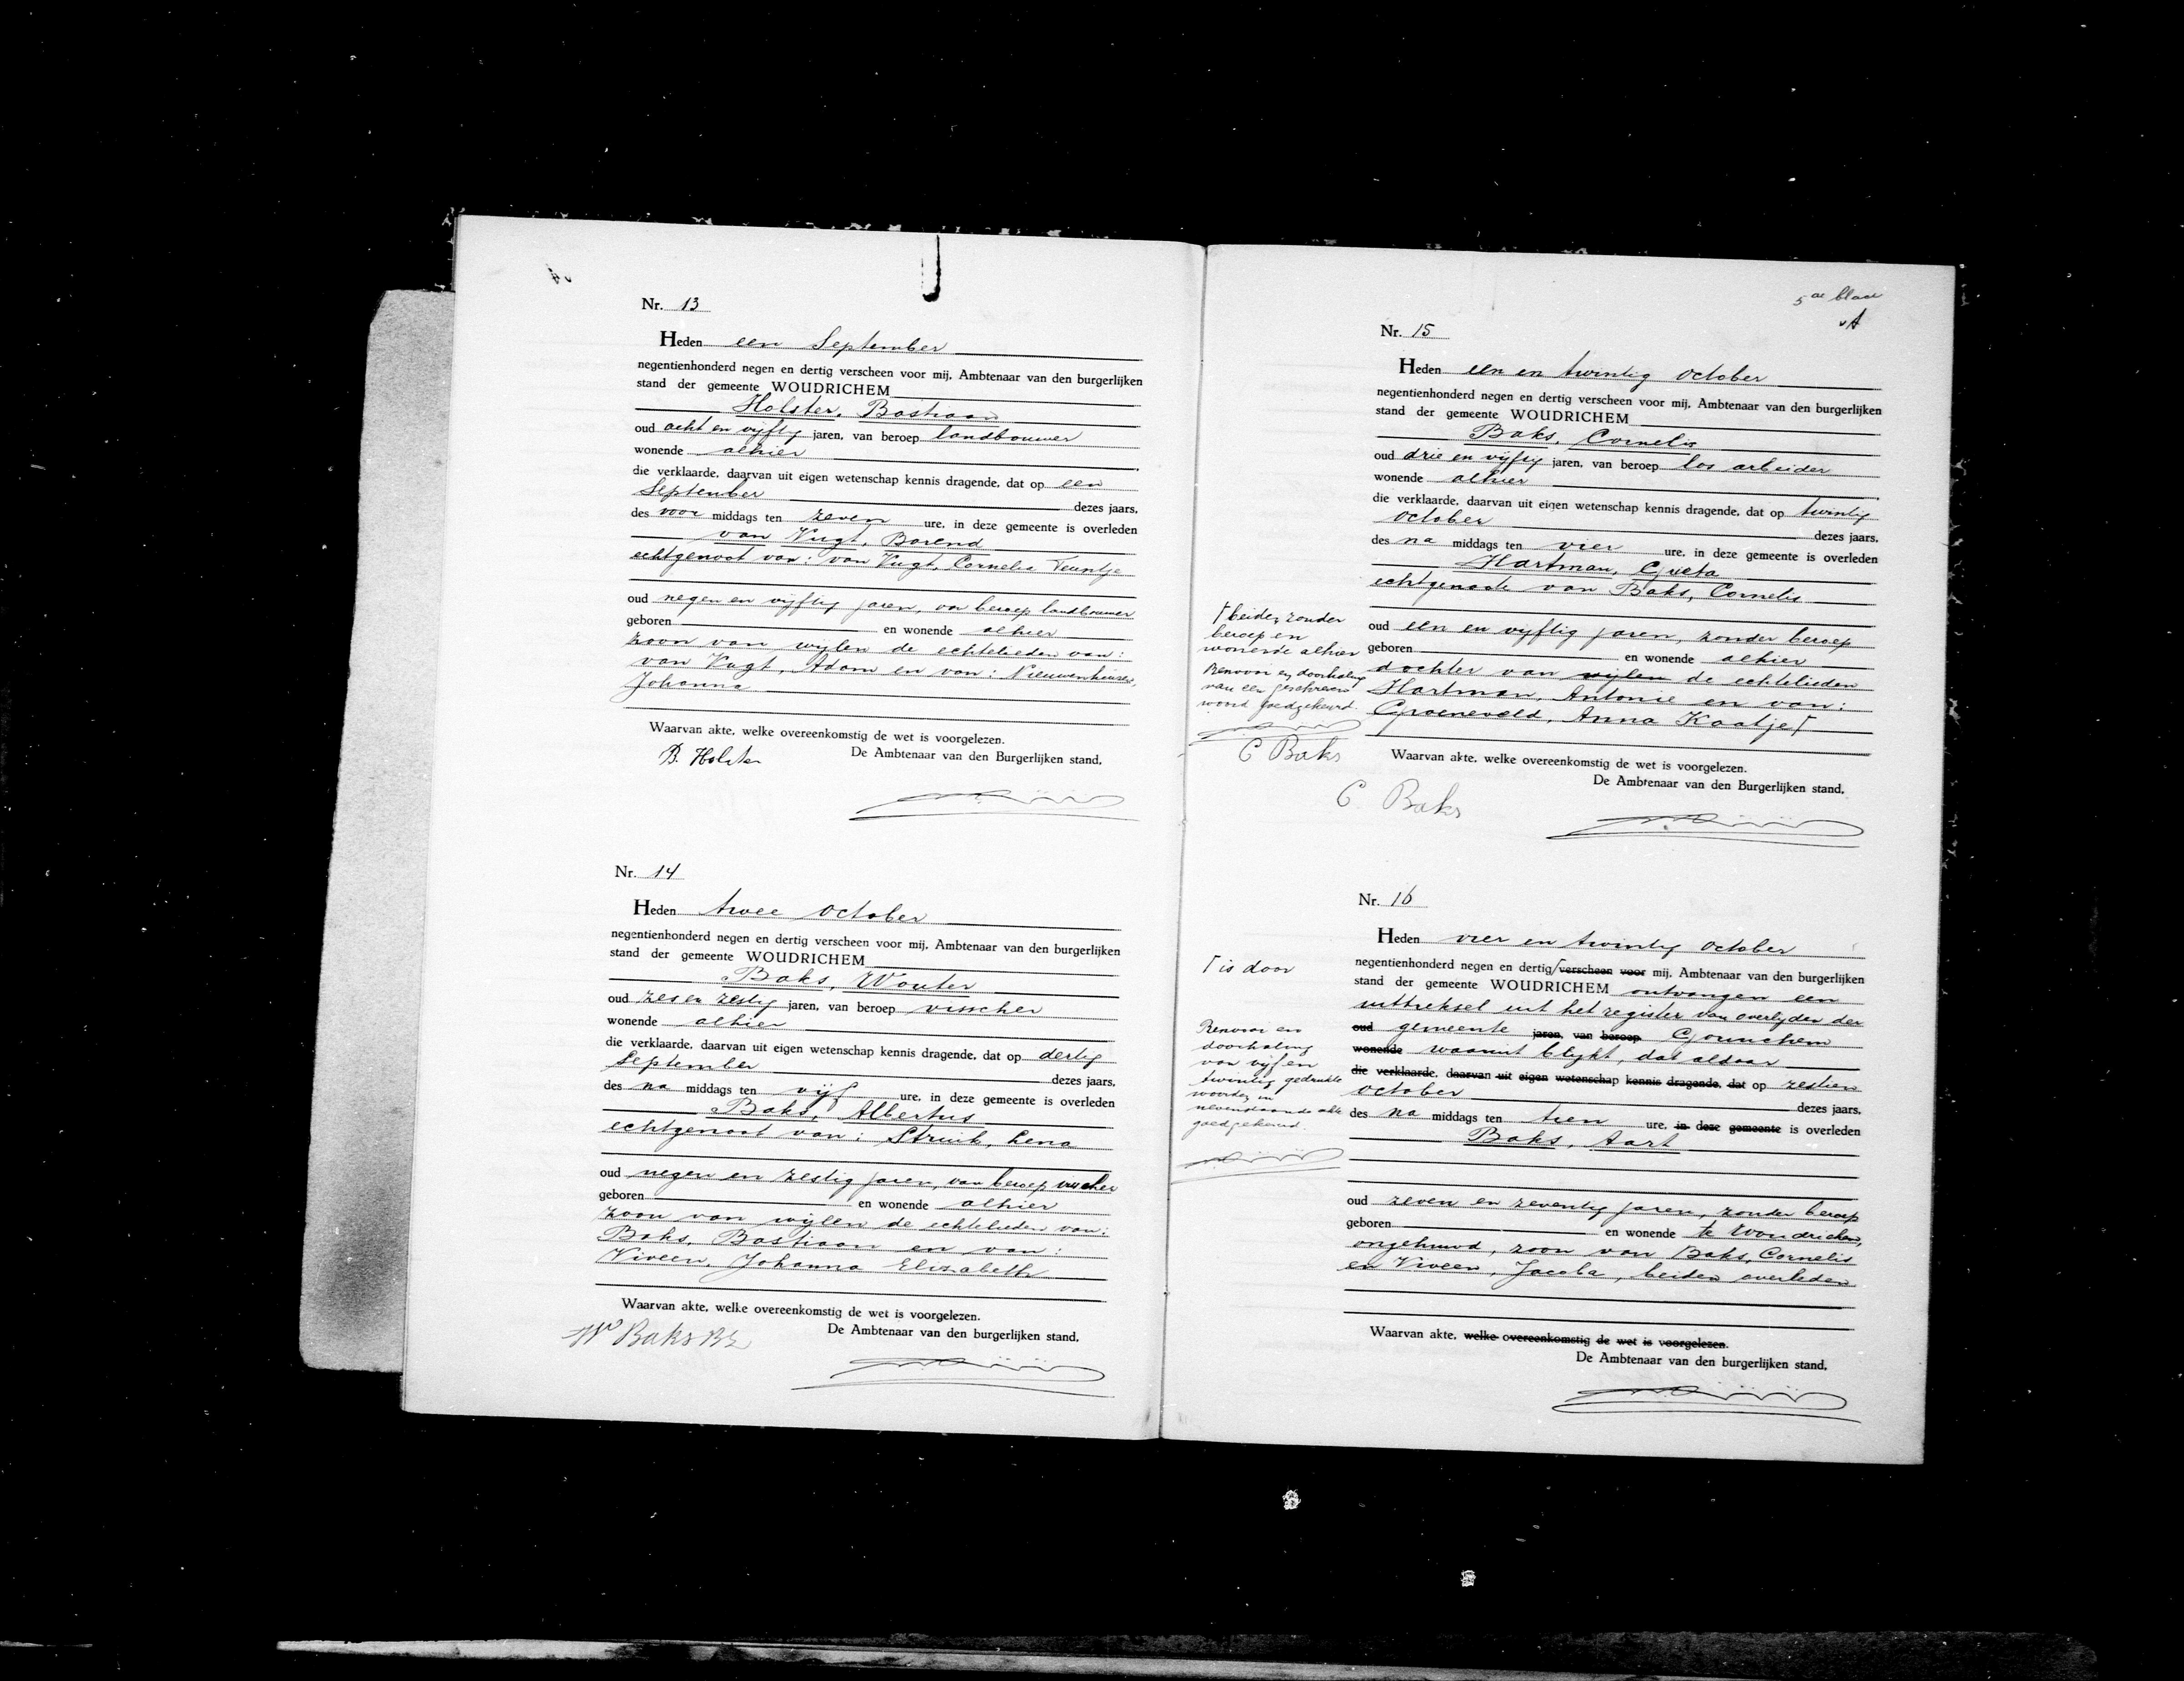 Nr. 13
Heden een September
negentienhonderd negen en dertig verscheen voor mij, Ambtenaar van den burgerlijken
stand der gemeente WOUDRICHEM
Holster, Bastiaan
oud acht en vijftig jaren, van beroep landbouwer
wonende alhier
die verklaarde, daarvan uit eigen wetenschap kennis dragende, dat op een
September dezes jaars,
des voor middags ten zeven ure, in deze gemeente is overleden
van Vugt, Barend
echtgenoot van: van Vugt, Cornelia Teuntje
oud negen en vijftig jaren, van beroep landbouwer
geboren en wonende alhier
zoon van wijlen de echtelieden van:
van Vugt, Adam en van: Nieuwenhuizen,
Johanna
Waarvan akte, welke overeenkomstig de wet is voorgelezen.
B. Holster De Ambtenaar van den Burgerlijken stand,
Nr. 14
Heden twee October
negentienhonderd negen en dertig verscheen voor mij, Ambtenaar van den burgerlijken
stand der gemeente WOUDRICHEM
Baks, Wouter
oud zes en zestig jaren, van beroep visscher
wonende alhier
die verklaarde, daarvan uit eigen wetenschap kennis dragende, dat op dertig
September dezes jaars,
des na middags ten vijf ure, in deze gemeente is overleden
Baks, Albertus
echtgenoot van: Struik, Lena
oud negen en zestig jaren, van beroep visscher
geboren en wonende alhier
zoon van wijlen de echtelieden van:
Baks, Bastiaan en van:
Viveen, Johanna Elizabeth
Waarvan akte, welke overeenkomstig de wet is voorgelezen.
W Baks BZ De Ambtenaar van den burgerlijken stand,
5de blad
Nr. 15
Heden een en twintig October
negentienhonderd negen en dertig verscheen voor mij, Ambtenaar van den burgerlijken
stand der gemeente WOUDRICHEM
Baks, Cornelis
oud drie en vijftig jaren, van beroep los arbeider
wonende alhier
die verklaarde, daarvan uit eigen wetenschap kennis dragende, dat op twintig
October dezes jaars,
des na middags ten vier ure, in deze gemeente is overleden
Hartman, Greta
echtgenoote van Baks, Cornelis
oud een en vijftig jaren, zonder beroep
geboren en wonende alhier
dochter van wijlen de echtelieden
Hartman, Antonie en van:
Groeneveld, Anna Kaatje
Γ beiden zonder
beroep en
wonende alhier
Renvooi en doorhaling
van een geschreven
woord goedgekeurd.
C Baks
Waarvan akte, welke overeenkomstig de wet is voorgelezen.
De Ambtenaar van den Burgerlijken stand,
C. Baks
Nr. 16
Heden vier en twintig October
negentienhonderd negen en dertig verscheen voor mij, Ambtenaar van den burgerlijken
stand der gemeente WOUDRICHEM ontvangen een
uittreksel uit het register van overlijden der
oud gemeente jaren, van beroep Gorinchem
wonende waaruit blijkt, dat aldaar
die verklaarde, daarvan uit eigen wetenschap kennis dragende, dat op zestien
October dezes jaars,
des na middags ten tien ure, in deze gemeente is overleden
Baks, Aart
oud zeven en zeventig jaren, zonder beroep
geboren en wonende te Woudrichem,
ongehuwd, zoon van Baks, Cornelis
en Viveen, Jacoba, beiden overleden
Γ is door
Renvooi en
doorhaling
van vijf en
twintig gedrukte
woorden in
nevenstaande akte
goedgekeurd.
Waarvan akte, welke overeenkomstig de wet is voorgelezen.
De Ambtenaar van den burgerlijken stand,